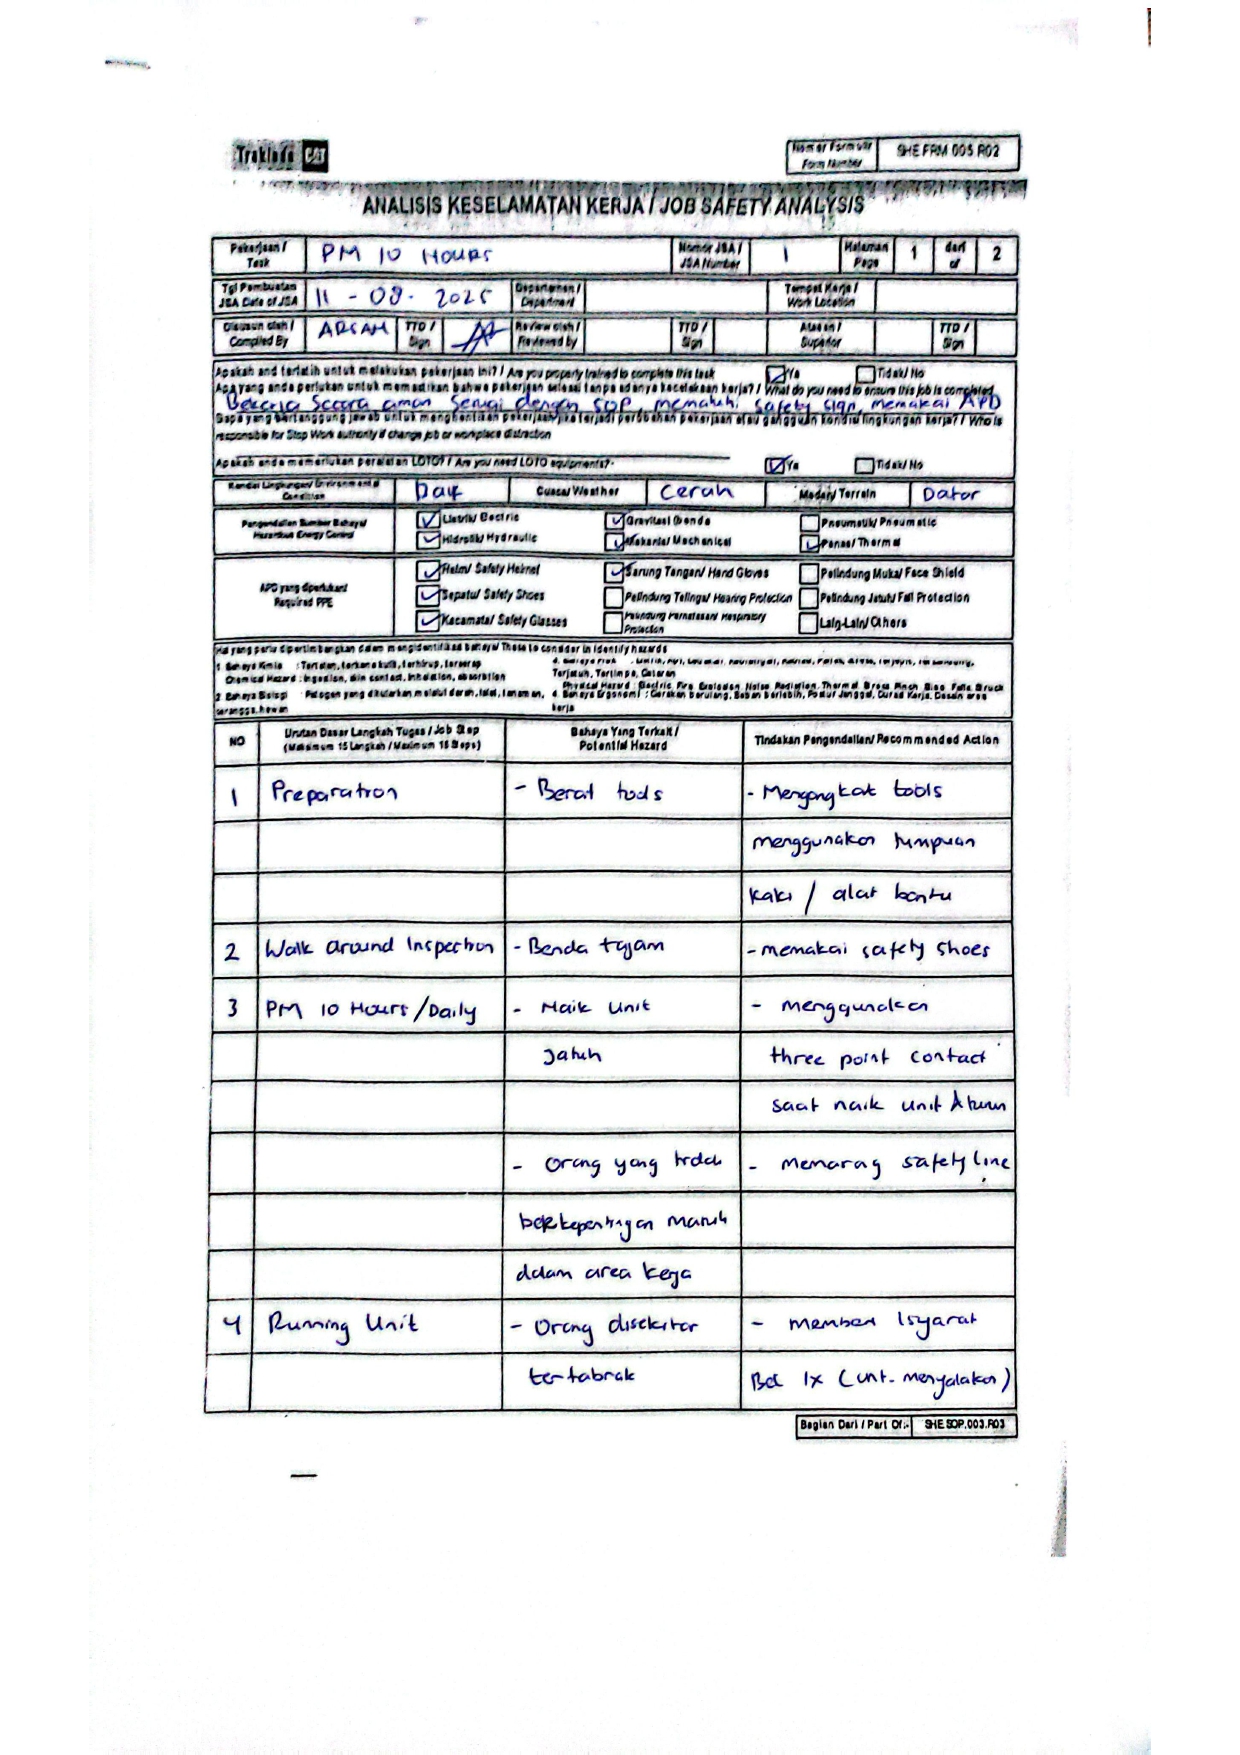 Trakindo CAT
Nomor Formulir
Form Number
SHE.FRM.005.R02
ANALISIS KESELAMATAN KERJA / JOB SAFETY ANALYSIS
Pekerjaan / Task
PM 10 HOURS
Nomor JSA / JSA Number
1
Halaman Page
1
dari of
2
Tgl Pembuatan JSA Date of JSA
11 - 08 - 2025
Departemen / Department
Tempat Kerja / Work Location
Disusun oleh / Compiled By
TTD / Sign
Review oleh / Reviewed by
TTD / Sign
Atasan / Superior
TTD / Sign
Apakah and terlatih untuk melakukan pekerjaan ini? / Are you properly trained to complete this task
Ya
Tidak/ No
Apa yang anda perlukan untuk memastikan bahwa pekerjaan selesai tanpa adanya kecelakaan kerja? / What do you need to ensure this job is completed
Bekerja secara aman sesuai dengan SOP mematuhi safety sign, memakai APD
Siapa yang bertanggung jawab untuk menghentikan pekerjaan jika terjadi perubahan pekerjaan atau gangguan kondisi lingkungan kerja? / Who is
responsible for Stop Work authority if change job or workplace distraction
Apakah anda memerlukan peralatan LOTO? / Are you need LOTO equipments?
Ya
Tidak/ No
Kondisi Lingkungan/ Environmental Condition
Baik
Cuaca/ Weather
Cerah
Medan/ Terrain
Datar
Pengendalian Sumber Bahaya/
Hazardous Energy Control
Listrik/ Electric
Gravitasi/ Benda
Pneumatik/ Pneumatic
Hidrolik/ Hydraulic
Mekanis/ Mechanical
Panas/ Thermal
APD yang diperlukan/
Required PPE
Helm/ Safety Helmet
Sarung Tangan/ Hand Gloves
Pelindung Muka/ Face Shield
Sepatu/ Safety Shoes
Pelindung Telinga/ Hearing Protection
Pelindung Jatuh/ Fall Protection
Kacamata/ Safety Glasses
Pelindung Pernafasan/ Respiratory Protection
Lain-Lain/ Others
Hal yang perlu dipertimbangkan dalam mengidentifikasi bahaya/ These to consider in identify hazards
1. Bahaya Kimia : Tertelan, terkena kulit, terhirup, terserap
Chemical Hazard : Ingestion, skin contact, inhalation, absorbtion
Terjatuh, Tertimpa, Getaran
Physical Hazard : Electric, Fire, Explosion, Noise, Radiation, Thermal
2. Bahaya Biologi : Patogen yang ditularkan melalui darah, lalat, tanaman,
serangga, hewan
4. Bahaya Ergonomi : Gerakan berulang, Beban berlebih, Postur Janggal, Durasi Kerja, Desain area
kerja
NO
Urutan Dasar Langkah Tugas / Job Step
(Maksimum 15 Langkah / Maximum 15 Steps)
Bahaya Yang Terkait /
Potential Hazard
Tindakan Pengendalian/ Recommended Action
1
Preparation
- Berat tools
- Mengangkat tools
menggunakan tumpuan
kaki / alat bantu
2
Walk around Inspection
- Benda tajam
- memakai safety shoes
3
PM 10 Hours/Daily
- Naik Unit
- menggunakan
Jatuh
three point contact
saat naik unit & turun
- Orang yang tidak
- Memasang safety line
berkepentingan masuk
dalam area kerja
4
Running Unit
- Orang disekitar
- memberi Isyarat
tertabrak
Bel 1x (unt. menyalakan)
Bagian Dari / Part Of:-
SHE.SOP.003.R03